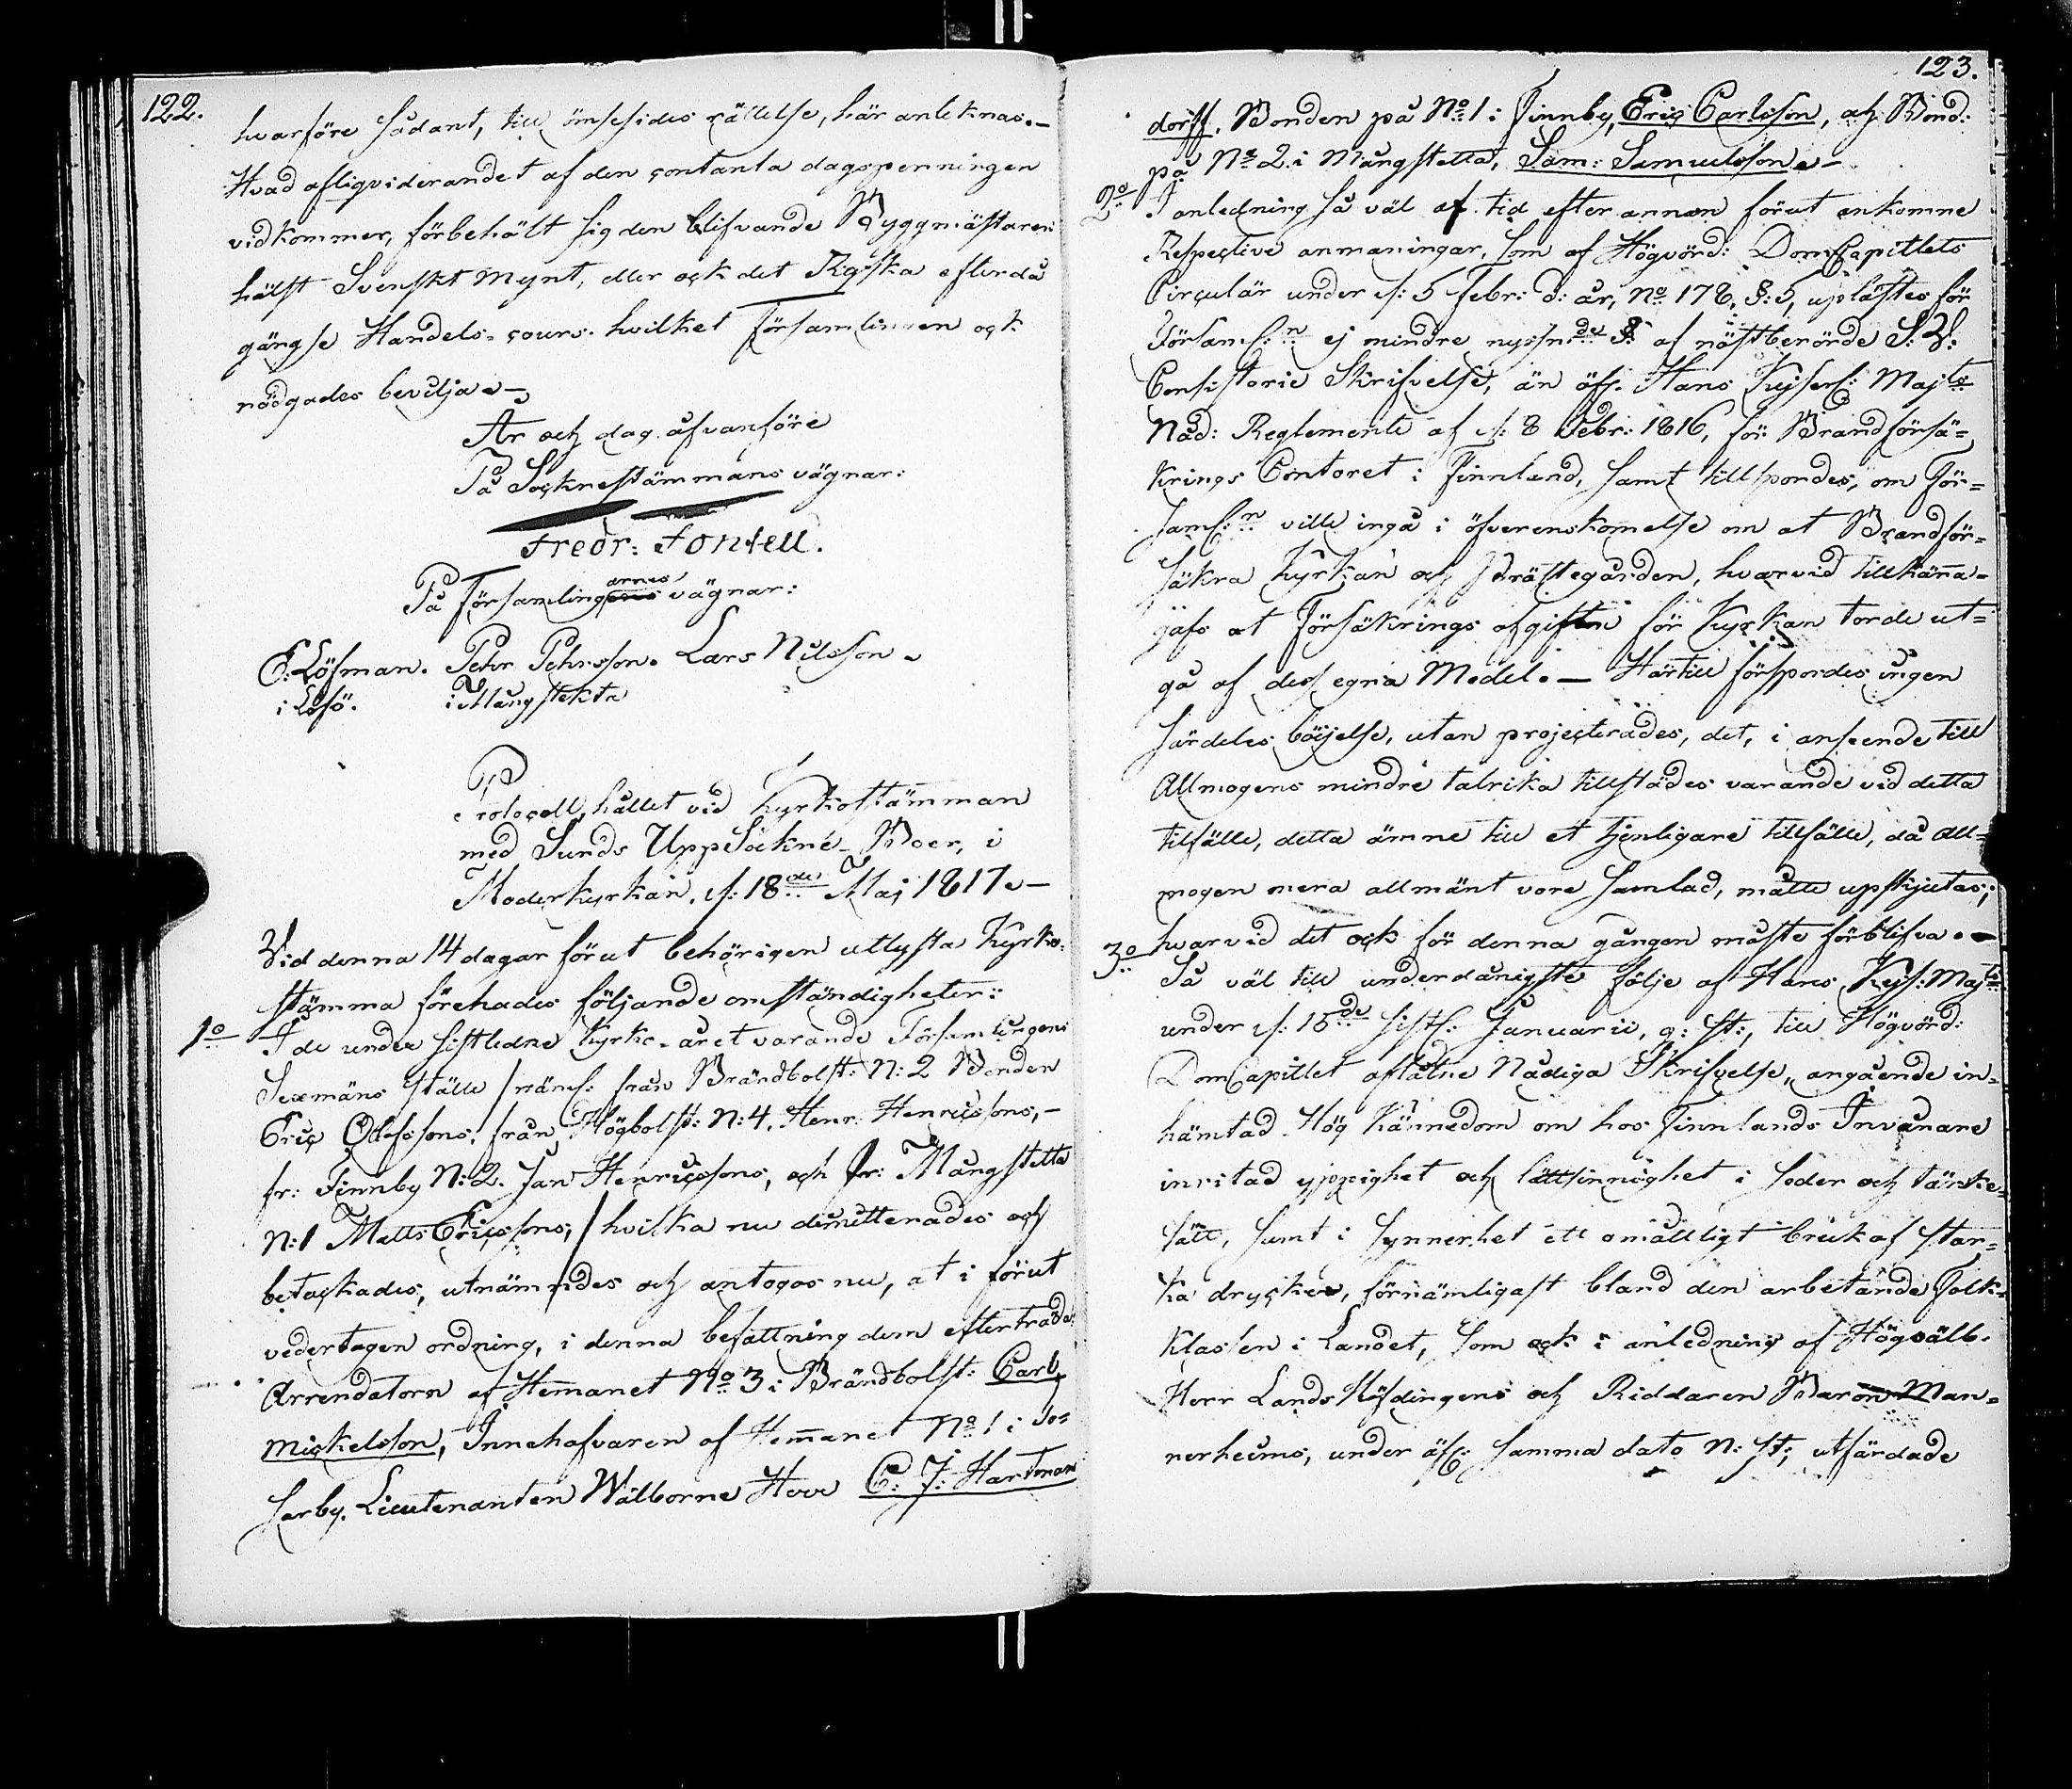 122.
hvarföre sådant, till ömsesides rättelse, här anteknas.–
Hvad afliqviderandet af den contanta dagspenningen
vidkommer, förbehålt sig den blifvande Byggmästaren
hälst Svenskt Mynt, eller ock det Ryska efter då
gängse Handels-cours. hvilket Församlingen ock
nödgades bevilja.–
År och dag. ofvanföre
På Socknestämmans vägnar:
Fredr: Fontell.
På Församlingarnes vägnar:
E: Löfman. Pehr Pehrsson. Lars Nilsson.
i Lofö. i Mångstekta
Protocoll, hållet vid Kyrkostämman
med Sunds UppSockne-Boer, i
Moderkyrkan. d: 18de Maj 1817.–
Vid denna 14 dagar förut behörigen utlysta Kyrko-
stämma förehades följande omständigheter:
1o I de under sistledne Kyrko-året varande Församlingens
Sexmäns ställe / näml: från Brändbolst: N:2 Bonden
Eric Olofssons, från Högbolst: N:4. Henr. Henricssons,–
fr: Finnby N:2. Jan Henricssons, och fr: Mångstetta
N:1 Matts Ericssons, / hvilka nu dimitterades och
betackades, utnämndes och antogos nu, at i förut
vedertagen ordning, i denna befattning dem efterträda:
Arrendatorn af Hemanet No 3 i Brändbolst: Carl
Mickelsson, Innehafvaren af Hemanet No 1 i To-
sarby. Lieutenanten Wälborne Herr C: J: Hartmans
123.
dorff. Bonden på No 1 i Finnby, Eric Carlsson, och Bond:
på No 2 i Mångstetta, Sam: Samuelsson.–
2o I anledning så väl af tid efter annan förut ankomne
Respective anmaningar, som af Högvörd: DomCapitlets
Circulär under d: 5 Febr: d: år, No 178, §: 5, uplästes för
Församl:n ej mindre nyssn:de § af näst berörde S: V:
Consistorie Skrifvelse, än öfv. Hans Kejserl: Majts
Nåd: Reglemente af d: 8 Febr: 1816, för Brandförsä-
krings Contoret i Finnland, samt tillspordes, om För-
saml:n ville ingå i öfverenskomelse om at Brandför-
säkra Kyrkan och Prästegården, hvarvid tillkänna-
gafs at Försäkrings afgiften för Kyrkan torde ut-
gå af dess egna Medel.– Härtill försspordes ingen
särdeles böijelse, utan projecterades, det, i anseende till
Allmogens mindre talrika tillstädes varande vid detta
tilfälle, detta ämne till et tjenligare tillfälle, då All-
mogen mera allmänt vore samlad, måtte upskjutas;
hvarvid det ock för denna gången måste förblifva.–
3o Så väl till underdånigste följe af Hans Kejs: Majts
under d: 18de sistl: Januarii, g: st:, till Högvörd:
DomCapitlet aflåtne Nådiga Skrifvelse, angående in-
hämtad Hög Kännedom om hos Finnlands Invånare
inritad yppighet och lättsinnighet i seder och tänke-
sätt, samt i synnerhet ett omåttligt bruk af star-
ka drycker, förnämligast bland den arbetande Folk-
klassen i Landet, som ock i anledning af Högvälb.
Herr LandsHöfdingens och Riddaren Baron Man-
nerheims, under äfv: samma dato n: st:, utfärdade